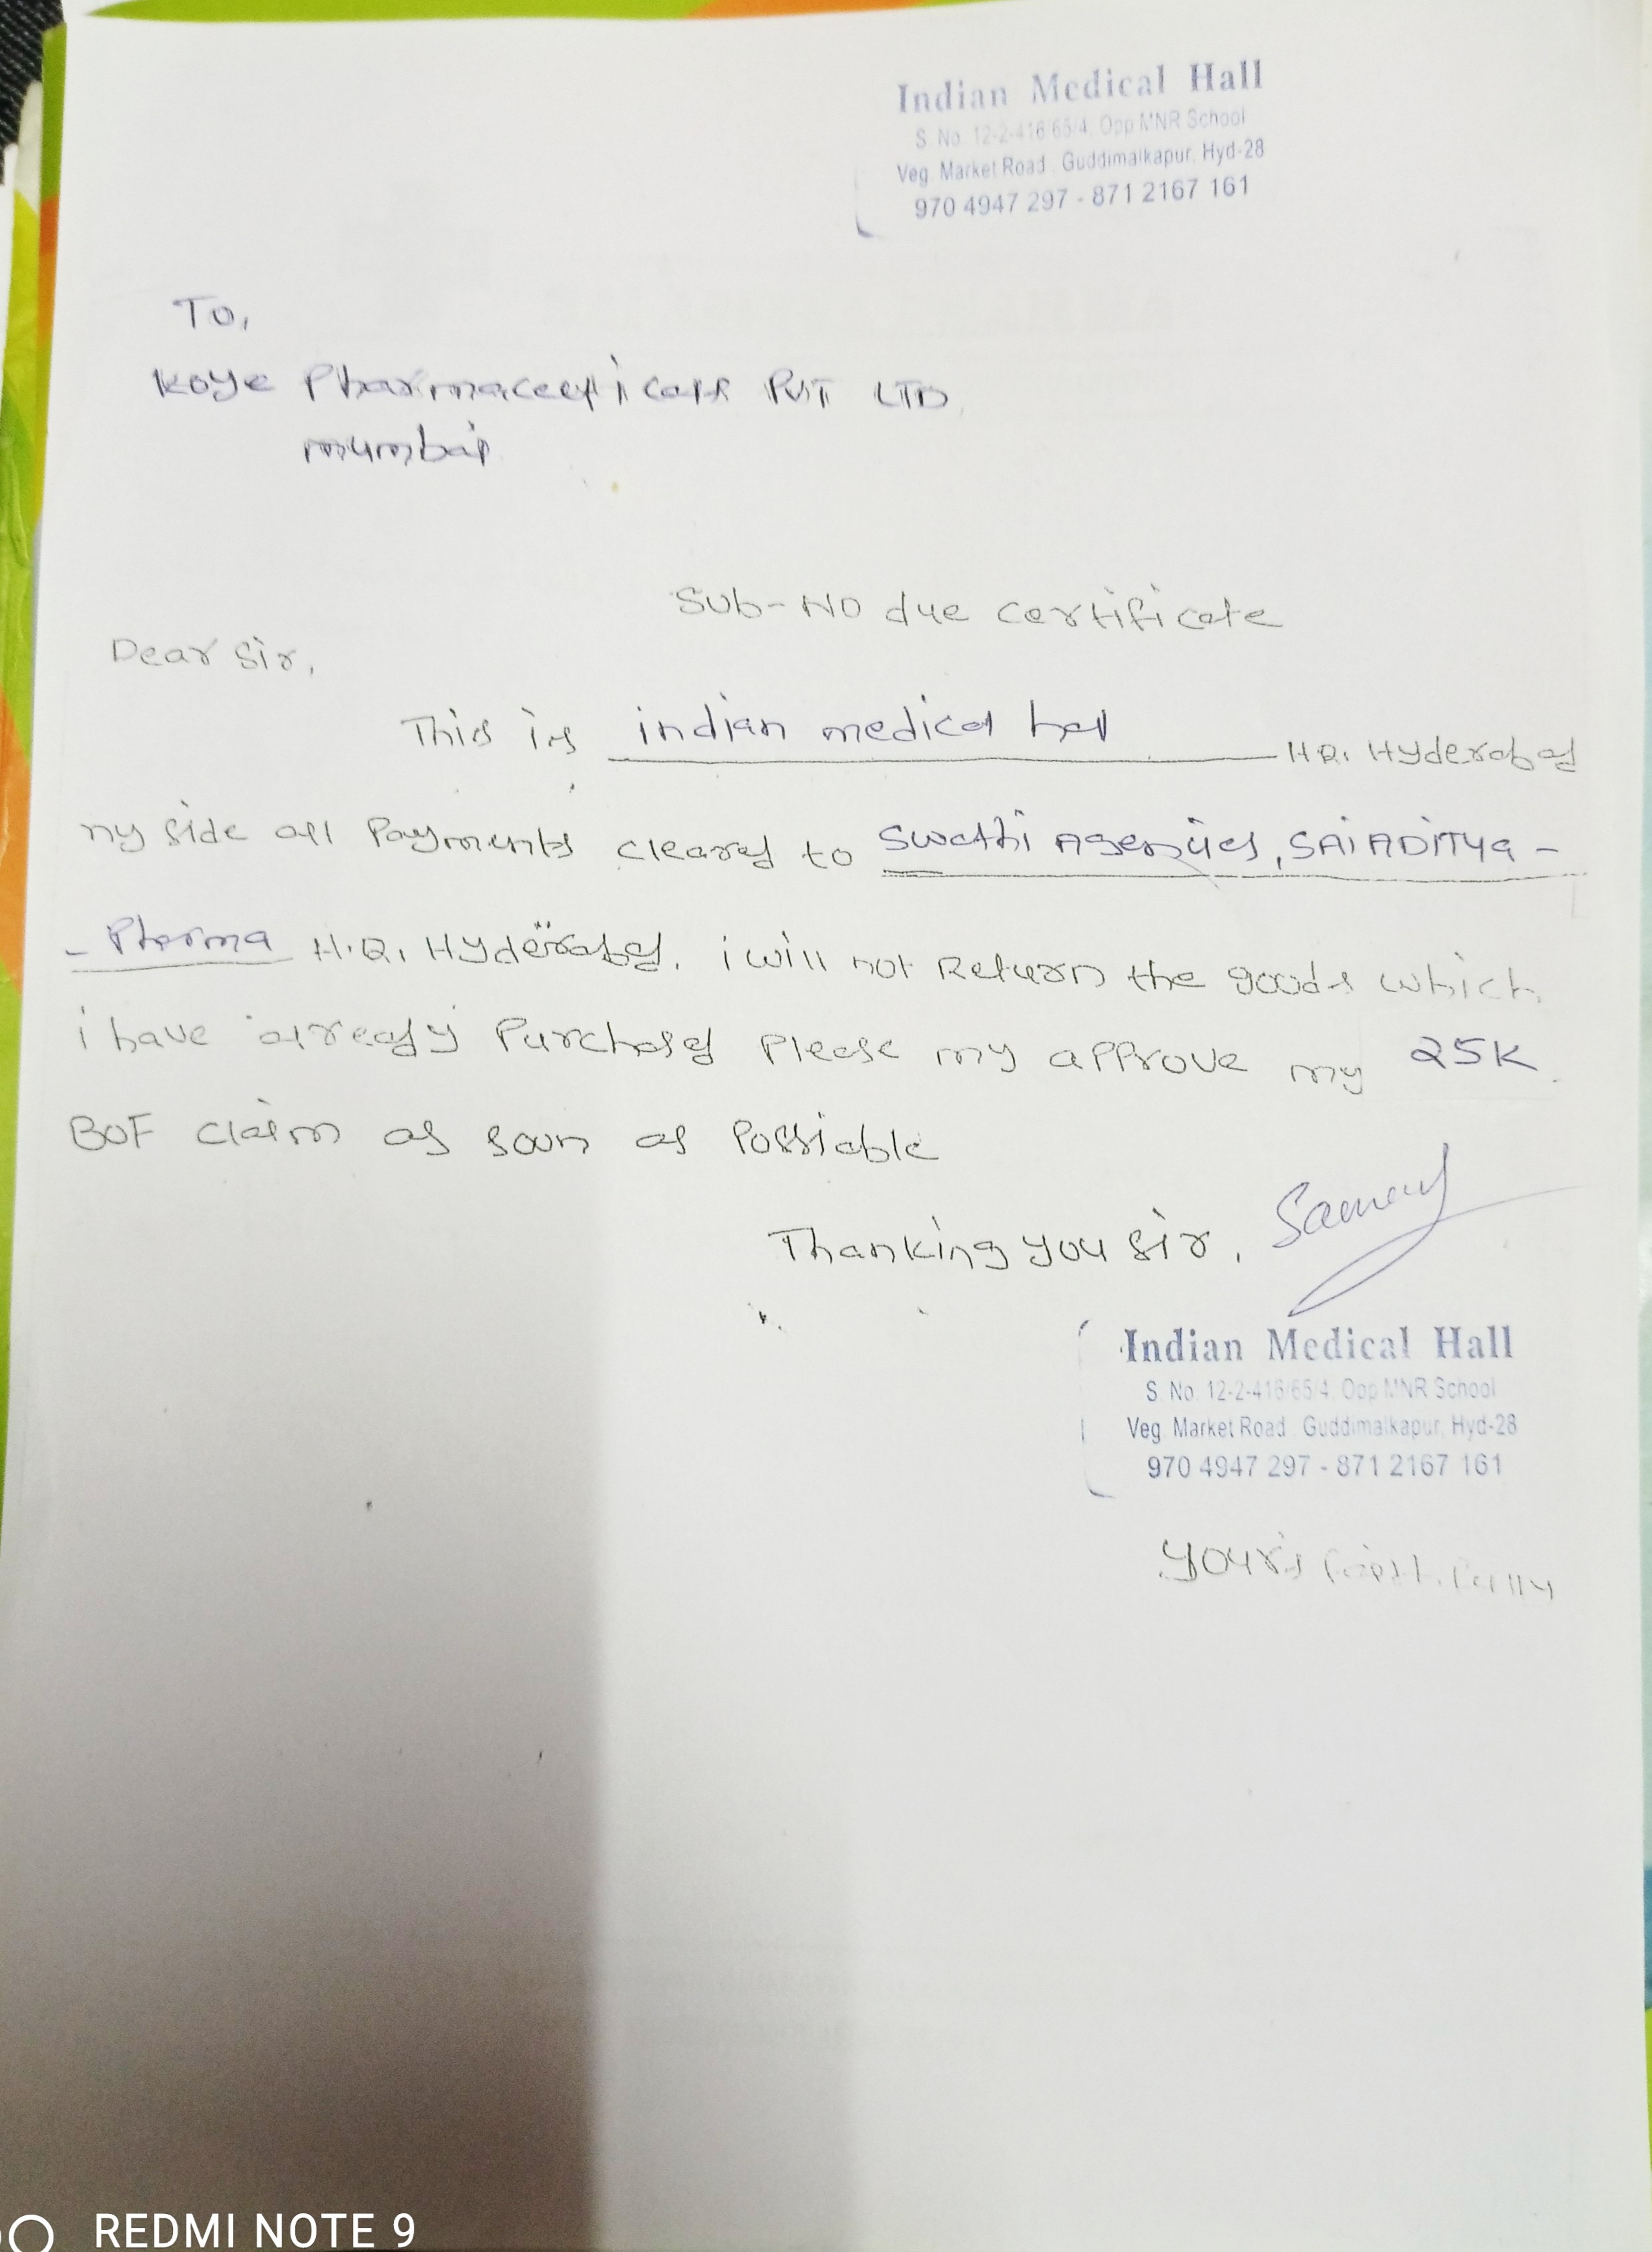 Indian Medical Hall
S. No. 12-2-416/65/4, Opp MNR School
Veg. Market Road, Guddimalkapur, Hyd-28
970 4947 297 - 871 2167 161
To,
Koye Pharmaceuticals PVT LTD
mumbai
Sub-No due certificate
Dear Sir,
This is indian medical hal H.Q. Hyderabad
my side all Payments cleared to Swathi Agencies, SAI ADITYA -
- Pharma H.Q. Hyderabad. i will not Return the goods which
i have already Purchased Please my approve my 25K
BOF claim as soon as Possiable
Thanking you sir.
Indian Medical Hall
S. No. 12-2-416/65/4, Opp MNR School
Veg. Market Road, Guddimalkapur, Hyd-28
970 4947 297 - 871 2167 161
your's faithfully
REDMI NOTE 9